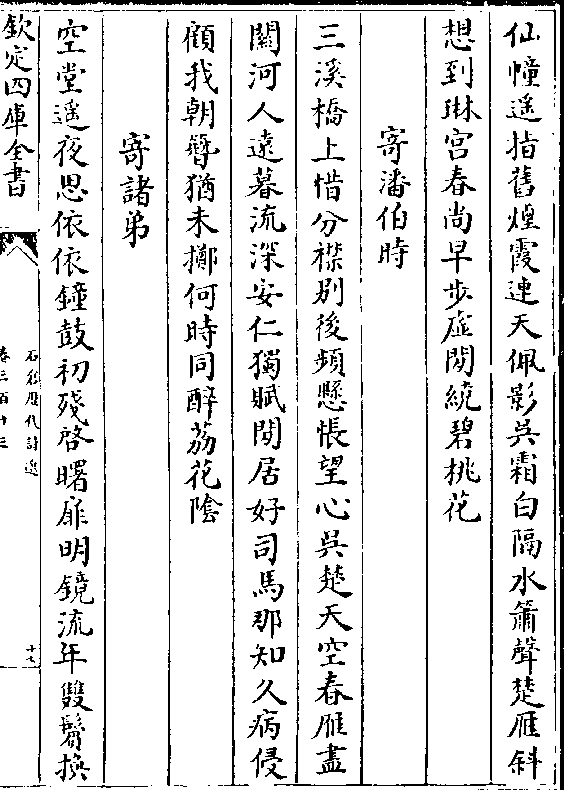 仙幢遥指舊煙霞連天佩影吳霜白隔水簫聲楚雁斜
想到琳宫春尚早步虛閒繞碧桃花
寄潘伯時
三溪橋上惜分襟别後頻懸悵望心吳楚天空春雁盡
關河人遠暮流深安仁獨賦閒居好司馬那知久病侵
顧我朝簪猶未擲何時同醉荔花陰
寄諸弟
空堂遥夜思依依鐘鼓初殘啓曙扉明鏡流年雙鬢換
欽定四庫全書
石倉歷代詩選
卷三百十三
十七